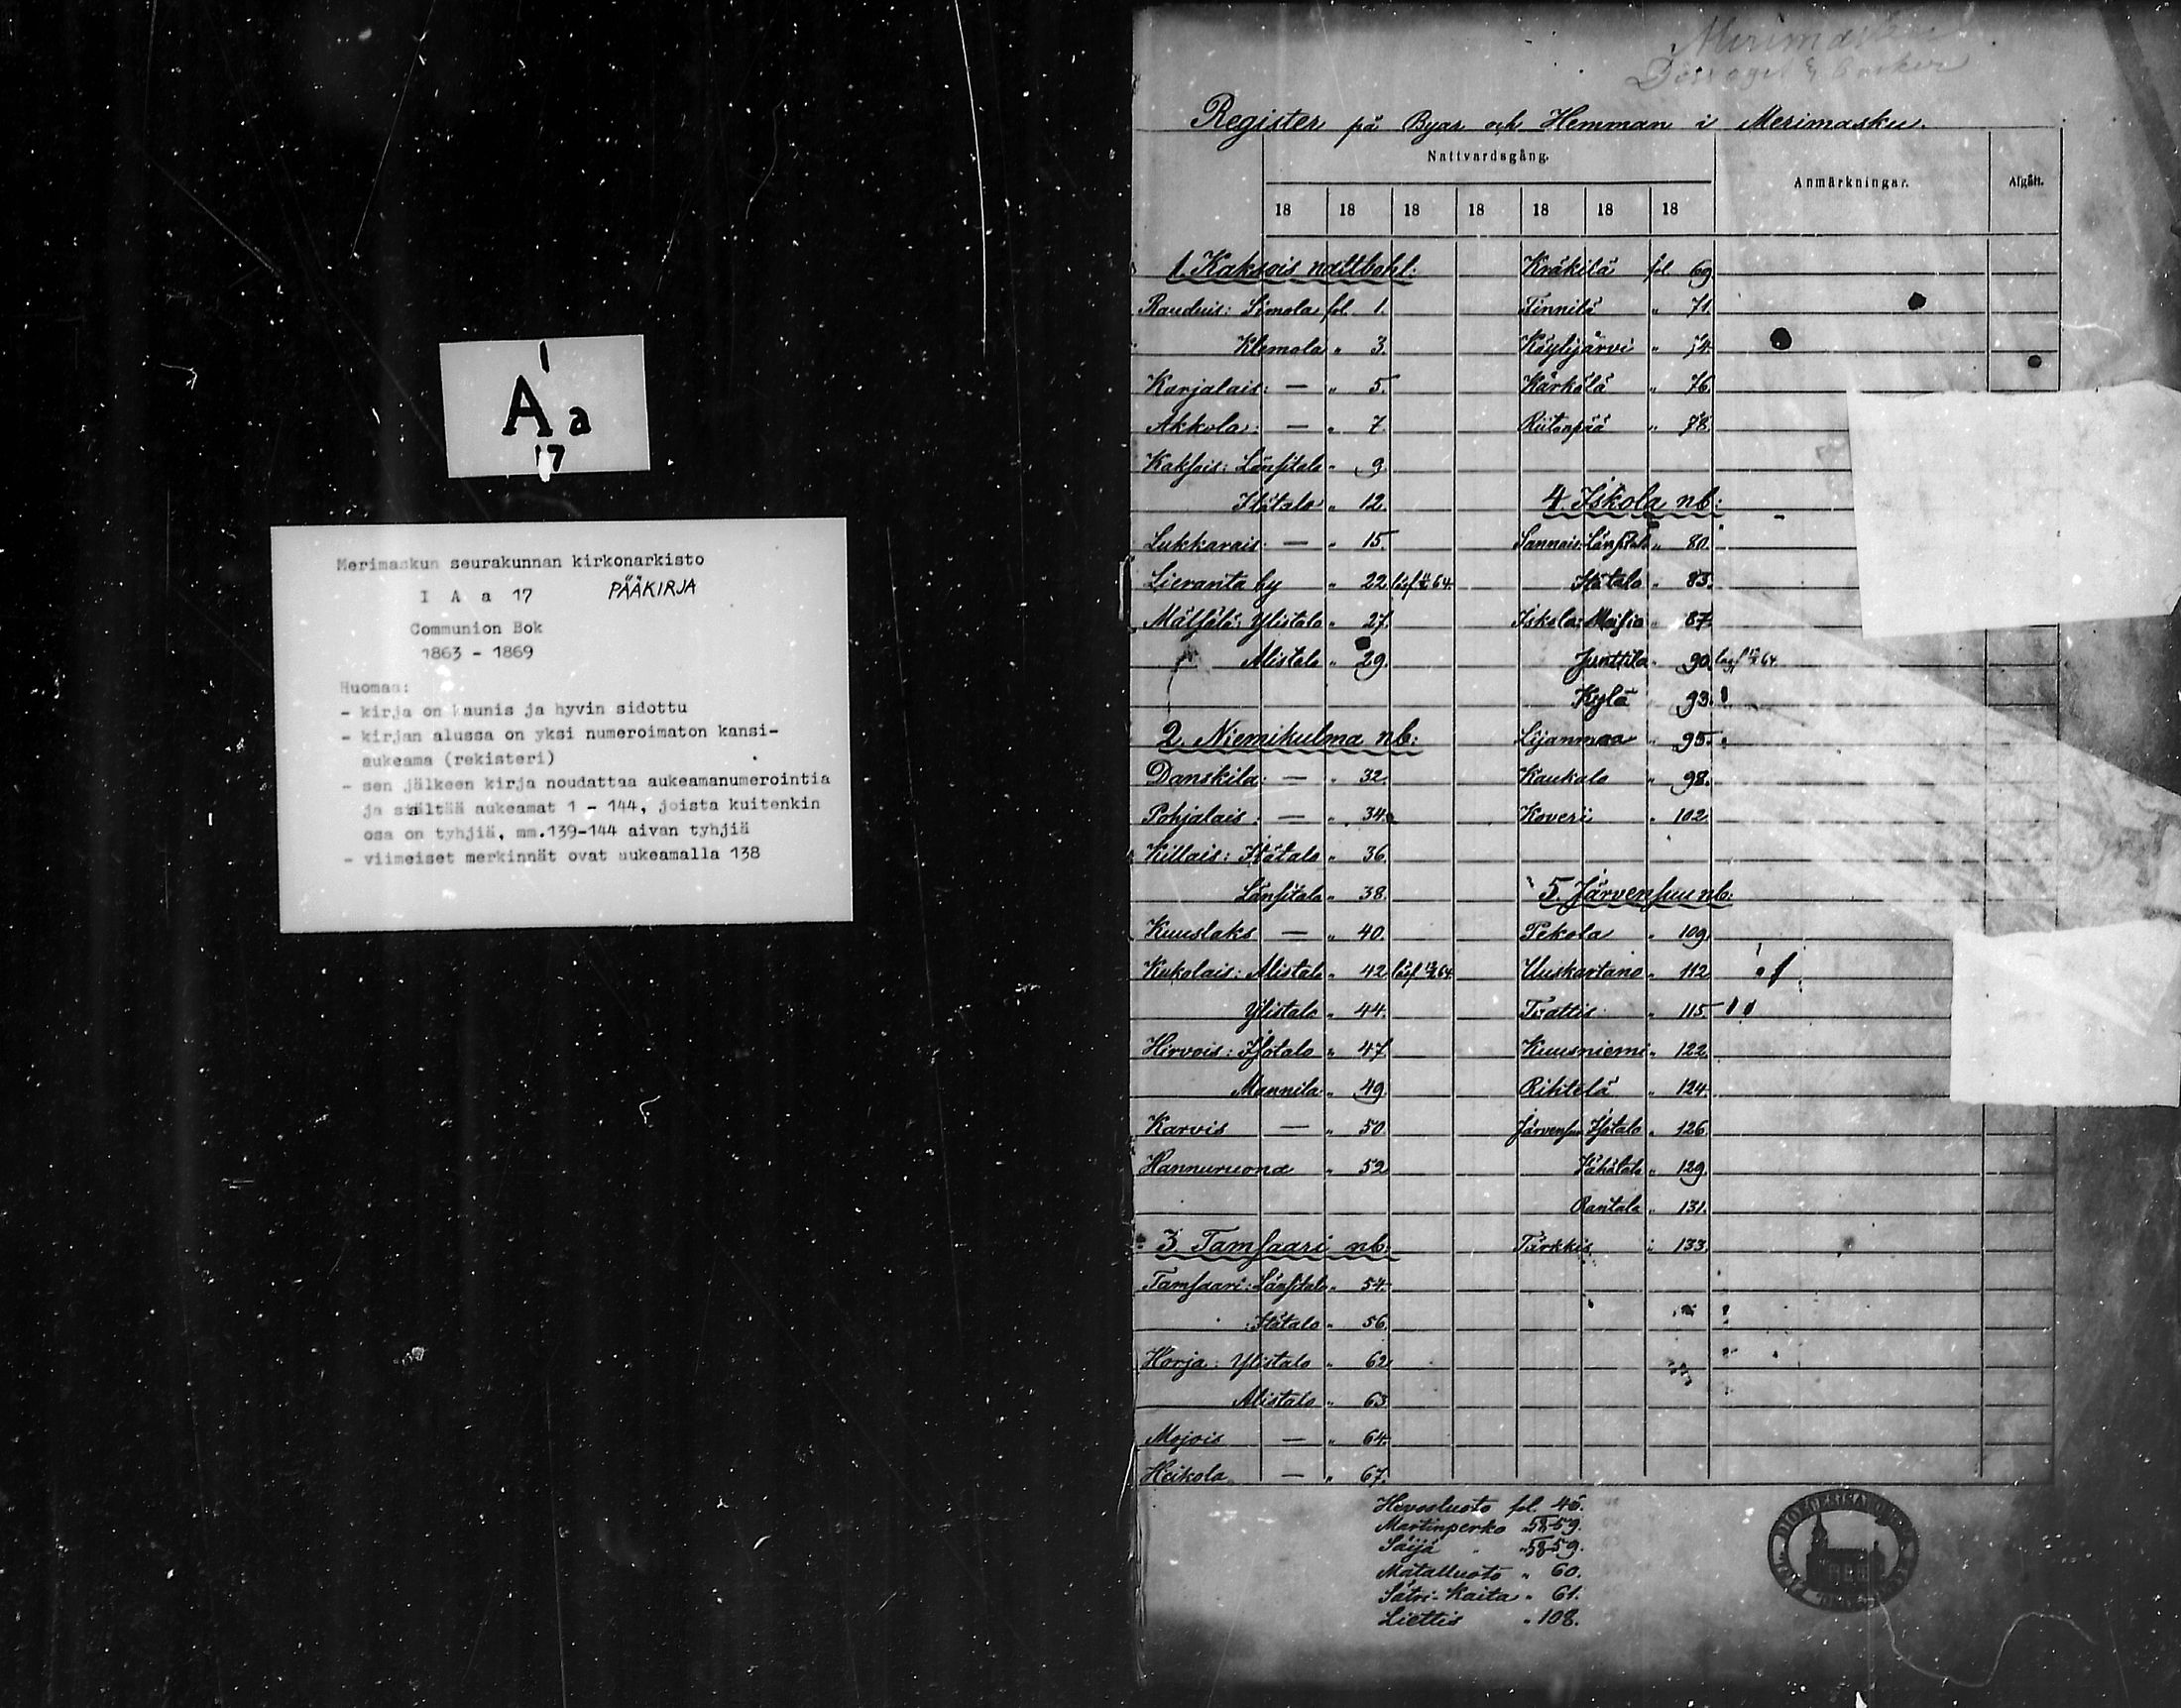 I
A a
17
Merimaskun seurakunnan kirkonarkisto
I A a 17 PÄÄKIRJA
Communion Bok
1863 - 1869
Huomaa:
- kirja on kaunis ja hyvin sidottu
- kirjan alussa on yksi numeroimaton kansi-
aukeama (rekisteri)
- sen jälkeen kirja noudattaa aukeamanumerointia
ja sisältää aukeamat 1 - 144, joista kuitenkin
osa on tyhjiä, mm.139-144 aivan tyhjiä
- viimeiset merkinnät ovat aukeamalla 138
Merimasku
Register på Byar och Hemman i Merimasku.
Nattvardsgång.
Anmärkningar.
Afgått.
18 18 18 18 18 18 18
1. Kaksois nattbohl:
Rauduis: Simola fol. 1.
Klemola " 3.
Karjalais: — " 5.
Akkola: — " 7.
Kaksois: Länsitalo " 9.
Itätalo " 12.
Lukkarais: — " 15.
Lieranta by " 22.
Mälsälä: Ylistalo " 27.
Alistalo " 29.
2. Niemikulma nb:
Danskila: — " 32.
Pohjalais: — " 34.
Killais: Itätalo " 36.
Länsitalo " 38.
Kuuslaks — " 40.
Kukolais: Alistalo " 42.
Ylistalo " 44.
Hirvois: Isotalo " 47.
Mannila " 49.
Karvis — " 50
Hannuruona " 52
3. Tamsaari nb:
Tamsaari: Länsitalo " 54.
: Itätalo " 56.
Horja: Ylistalo " 62
Alistalo " 63
Mojois — " 64.
Heikola — " 67.
Kräkilä fol 69
Tinnilä " 71.
Köylijärvi " 74.
Kärkölä " 76.
Riitanpää " 78.
4. Iskola nb:
Sannais: Länsitalo " 80.
Itätalo " 83.
Iskola: Maisia " 87.
Junttila " 90.
Kylä " 93.
Lijanmaa " 95.
Kaukalo " 98.
Koveri " 102
5. Järvensuu nb:
Pekola " 109
Uuskartano " 112
Trattis " 115
Kuusniemi " 122
Rihtelä " 124.
Järvensuu Isotalo " 126
Vähätalo " 129.
Rantala " 131.
Tärkkis " 133.
Hevosluoto fol. 46.
Martinperko " 58-59.
Säijä " 58-59.
Matalluoto " 60.
Sätri-Kaita " 61.
Liettis " 108.